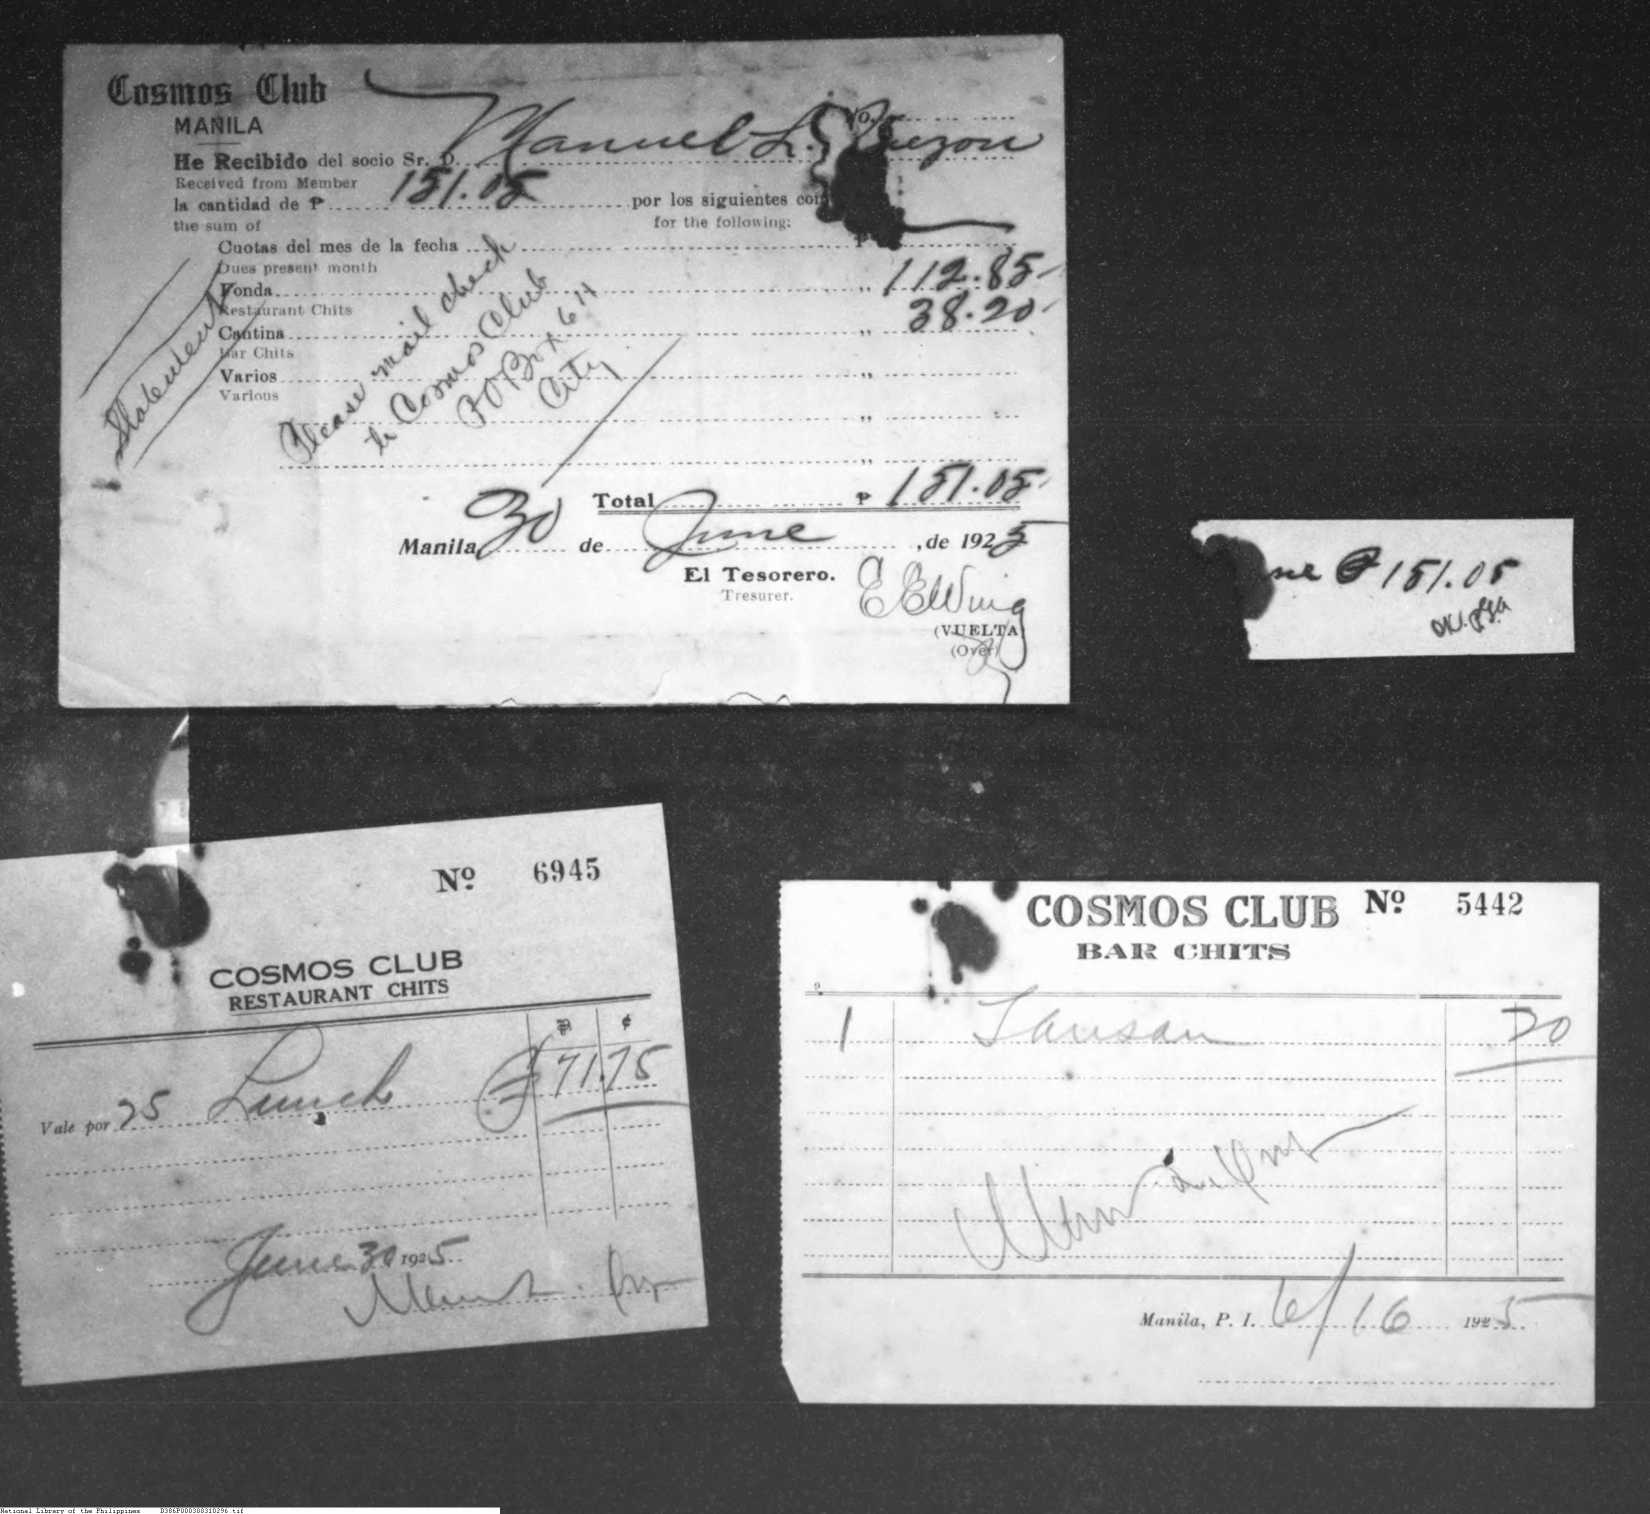 Cosmos Club
MANILA
He Recibido del socio Sr. D. Manuel L. Quezon
Received from Member
la cantidad de ₱ 151.05 por los siguientes con
the sum of for the following:
Cuotas del mes de la fecha ₱
Dues present month
Fonda „ 112.85
Restaurant Chits
Cantina „ 38.20
Bar Chits
Varios „
Various
„
„
Statement
Please mail check
to Cosmos Club
PO Box 614
City
Total ₱ 151.05
Manila 30 de June , de 1925
El Tesorero.
Tresurer.
E E Wing
(VUELTA)
(Over)
ne ₱ 151.05
OK.
Nº 6945
COSMOS CLUB
RESTAURANT CHITS
₱ ¢
Vale por 25 Lunch ₱ 71.75
June 30 1925
COSMOS CLUB Nº 5442
BAR CHITS
1 Tansan 20
Manila, P. I. 6/16 1925
National Library of the Philippines D386P000300310296.tif